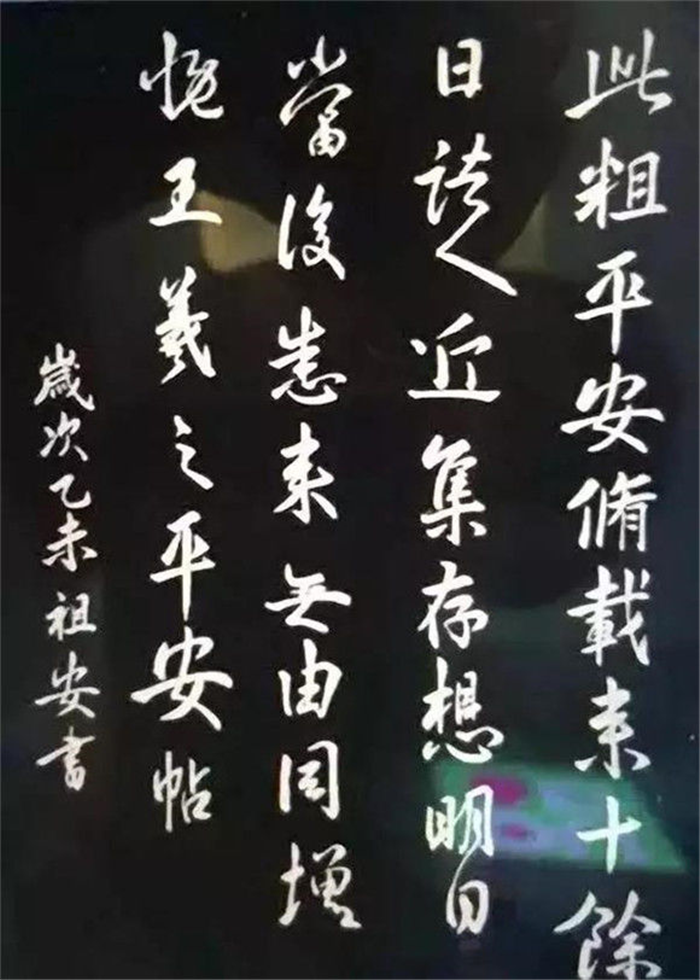 此粗平安脩載来十餘
日諸人近集存想明日
當復悉来無由同增
慨王羲之平安帖
歲次乙未祖安書